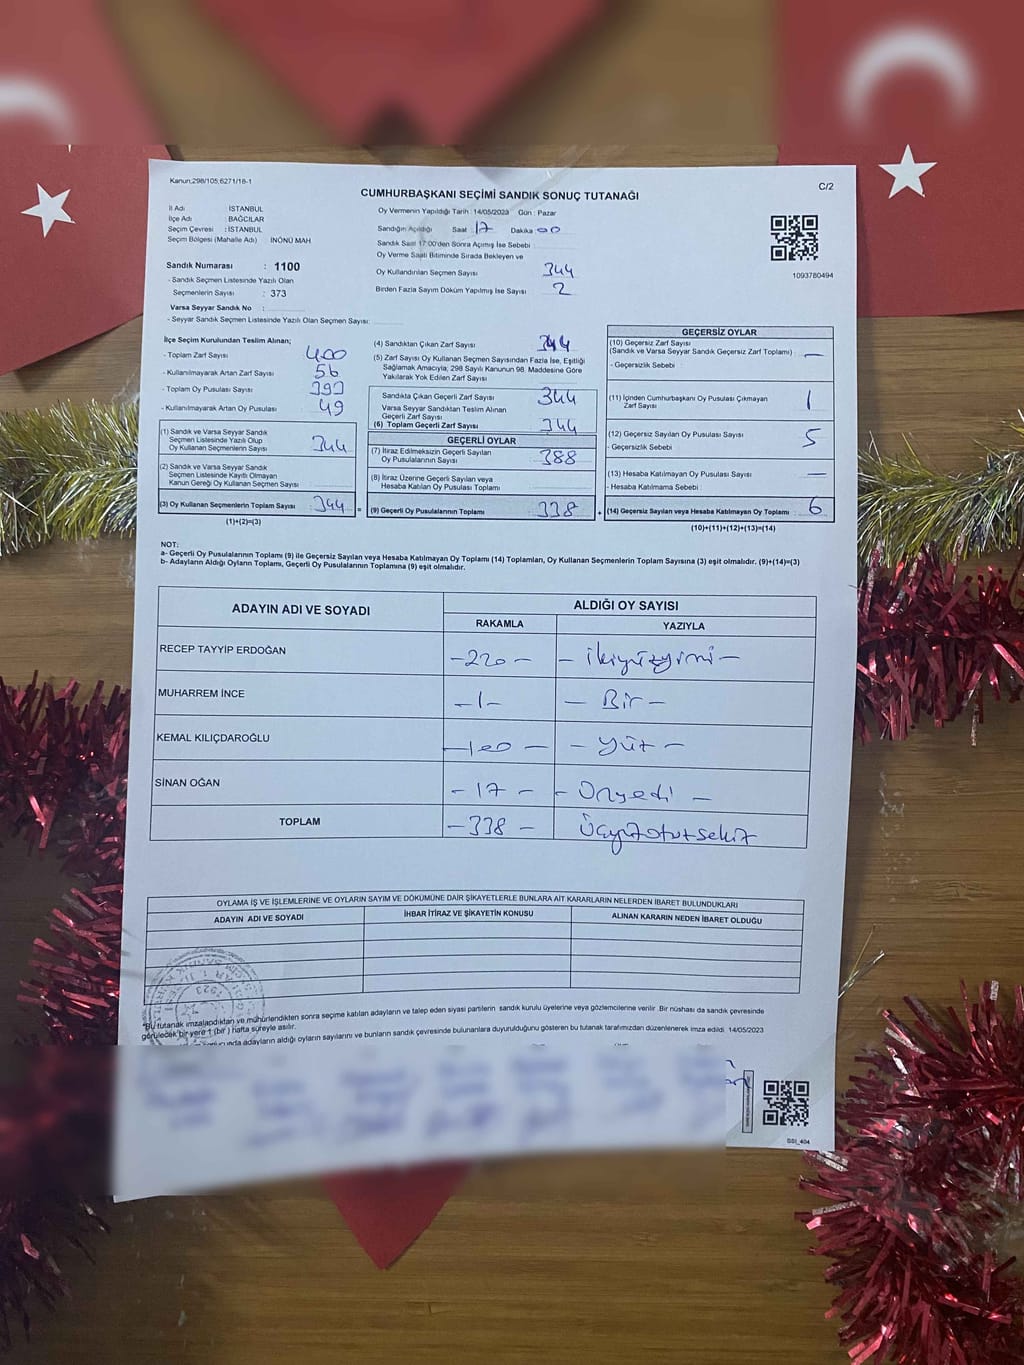 Kanun:298/105;6271/18-1
C/2
CUMHURBAŞKANI SEÇİMİ SANDIK SONUÇ TUTANAĞI
İl Adı : İSTANBUL
İlçe Adı : BAĞCILAR
Seçim Çevresi : İSTANBUL
Seçim Bölgesi (Mahalle Adı) : İNÖNÜ MAH
Sandık Numarası : 1100
- Sandık Seçmen Listesinde Yazılı Olan
Seçmenlerin Sayısı : 373
Varsa Seyyar Sandık No :
- Seyyar Sandık Seçmen Listesinde Yazılı Olan Seçmen Sayısı:
Oy Vermenin Yapıldığı Tarih : 14/05/2023 Gün : Pazar
Sandığın Açıldığı Saat : 17 Dakika 00
Sandık Saat 17:00'den Sonra Açımış İse Sebebi :
Oy Verme Saati Bitiminde Sırada Bekleyen ve
Oy Kullandırılan Seçmen Sayısı 344
Birden Fazla Sayım Döküm Yapılmış İse Sayısı 2
1093780494
İlçe Seçim Kurulundan Teslim Alınan;
- Toplam Zarf Sayısı 400
- Kullanılmayarak Artan Zarf Sayısı 56
- Toplam Oy Pusulası Sayısı 393
- Kullanılmayarak Artan Oy Pusulası 49
(1) Sandık ve Varsa Seyyar Sandık
Seçmen Listesinde Yazılı Olup
Oy Kullanan Seçmenlerin Sayısı 344
(2) Sandık ve Varsa Seyyar Sandık
Seçmen Listesinde Kayıtlı Olmayan
Kanun Gereği Oy Kullanan Seçmen Sayısı
(3) Oy Kullanan Seçmenlerin Toplam Sayısı 344 =
(1)+(2)=(3)
(4) Sandıktan Çıkan Zarf Sayısı 344
(5) Zarf Sayısı Oy Kullanan Seçmen Sayısından Fazla İse, Eşitliği
Sağlamak Amacıyla; 298 Sayılı Kanunun 98. Maddesine Göre
Yakılarak Yok Edilen Zarf Sayısı
Sandıkta Çıkan Geçerli Zarf Sayısı 344
Varsa Seyyar Sandıktan Teslim Alınan
Geçerli Zarf Sayısı
(6) Toplam Geçerli Zarf Sayısı 344
GEÇERLİ OYLAR
(7) İtiraz Edilmeksizin Geçerli Sayılan
Oy Pusulalarının Sayısı 388
(8) İtiraz Üzerine Geçerli Sayılan veya
Hesaba Katılan Oy Pusulası Toplamı
(9) Geçerli Oy Pusulalarının Toplamı 338 +
GEÇERSİZ OYLAR
(10) Geçersiz Zarf Sayısı
(Sandık ve Varsa Seyyar Sandık Geçersiz Zarf Toplamı) : —
- Geçersizlik Sebebi :
(11) İçinden Cumhurbaşkanı Oy Pusulası Çıkmayan
Zarf Sayısı 1
(12) Geçersiz Sayılan Oy Pusulası Sayısı 5
- Geçersizlik Sebebi :
(13) Hesaba Katılmayan Oy Pusulası Sayısı —
- Hesaba Katılmama Sebebi :
(14) Geçersiz Sayılan veya Hesaba Katılmayan Oy Toplamı : 6
(10)+(11)+(12)+(13)=(14)
NOT:
a- Geçerli Oy Pusulalarının Toplamı (9) ile Geçersiz Sayılan veya Hesaba Katılmayan Oy Toplamı (14) Toplamları, Oy Kullanan Seçmenlerin Toplam Sayısına (3) eşit olmalıdır. (9)+(14)=(3)
b- Adayların Aldığı Oyların Toplamı, Geçerli Oy Pusulalarının Toplamına (9) eşit olmalıdır.
ADAYIN ADI VE SOYADI ALDIĞI OY SAYISI
RAKAMLA YAZIYLA
RECEP TAYYİP ERDOĞAN -220- - ikiyüzyirmi -
MUHARREM İNCE -1- - Bir -
KEMAL KILIÇDAROĞLU -100- - Yüz -
SİNAN OĞAN -17- - Onyedi -
TOPLAM -338- Üçyüzotuzsekiz
OYLAMA İŞ VE İŞLEMLERİNE VE OYLARIN SAYIM VE DÖKÜMÜNE DAİR ŞİKAYETLERLE BUNLARA AİT KARARLARIN NELERDEN İBARET BULUNDUKLARI
ADAYIN ADI VE SOYADI İHBAR İTİRAZ VE ŞİKAYETİN KONUSU ALINAN KARARIN NEDEN İBARET OLDUĞU
1923
*Bu tutanak imzalandıktan ve mühürlendikten sonra seçime katılan adayların ve talep eden siyasi partilerin sandık kurulu üyelerine veya gözlemcilerine verilir. Bir nüshası da sandık çevresinde
görülecek bir yere 1 (bir) hafta süreyle asılır.
adayların aldığı oyların sayılarını ve bunların sandık çevresinde bulunanlara duyurulduğunu gösteren bu tutanak tarafımızdan düzenlenerek imza edildi. 14/05/2023
SSI_404